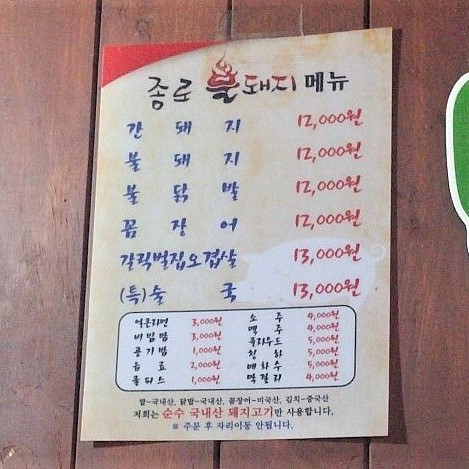 종로 불돼지 메뉴
간 돼 지 12,000원
불 돼 지 12,000원
불 닭 발 12,000원
꼼 장 어 12,000원
갈릭벌집오겹살 13,000원
(특)술 국 13,000원
얼큰라면 3,000원 소 주 4,000원
비빔밥 3,000원 맥 주 4,000원
공기밥 1,000원 클라우드 5,000원
음 료 2,000원 청 하 5,000원
쿨피스 1,000원 매화수 5,000원
막걸리 4,000원
쌀-국내산, 닭발-국내산, 꼼장어-미국산, 김치-중국산
저희는 순수 국내산 돼지고기만 사용합니다.
※ 주문 후 자리이동 안됩니다.